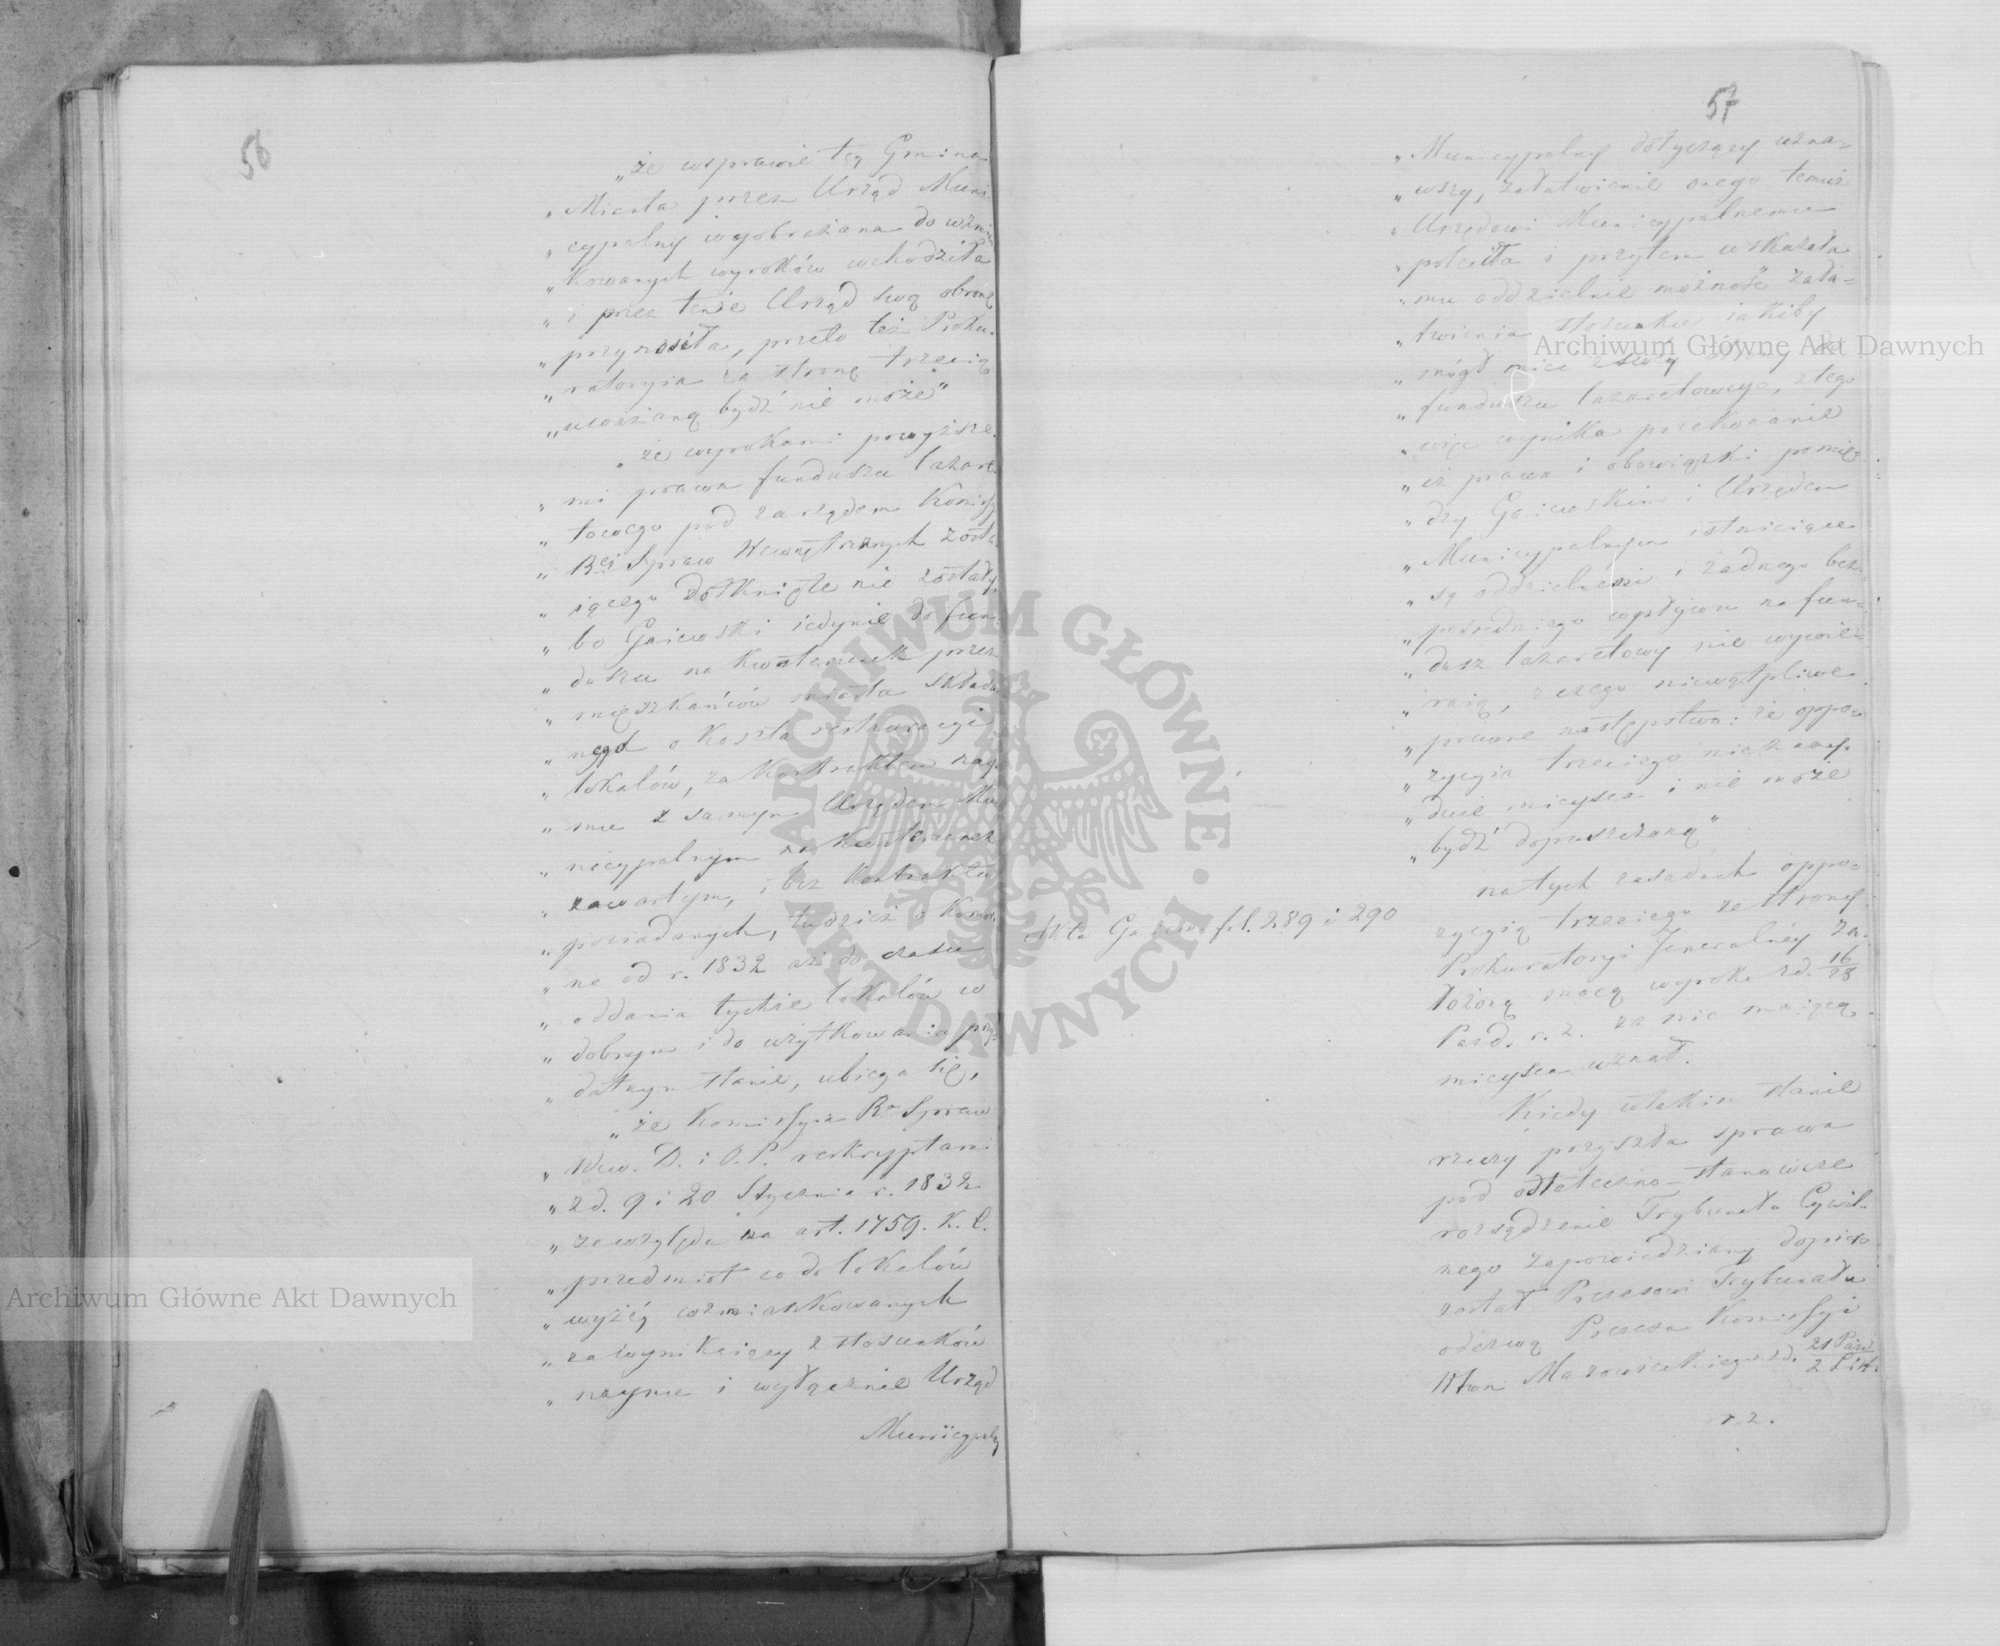 56
„że wsprawie tey Gmina
„Miasta przez Urząd Muni
„cypalny wyobrażana do wzmian
„kowanych wyroków wchodziła
„i przez tenże Urząd swą obronę
„przynosiła, przeto też Proku-
„ratorya za stronę trzecią
„uważaną bydź nie może"
„że wyrokami powyższe-
„mi prawa funduszu lazare
„towego pod zarządem Komissyi
„Rej Spraw Wewnętrznych zosta
„iącego dotknięte nie zostały,
„bo Gaiewski iedynie do fun
„duszu na kwaterunek przez
„mieszkańców miasta składa
„nego o koszta restauracyi
„lokalów, za kontraktem nay
„mu z samym Urzędem Mu
„nicypalnym na kwaterunek
„zawartym, i bez kontraktu
„posiadanych, tudzież o komor
„ne od r. 1832 aż do czasu
„oddania tychże lokalów w
„dobrym i do użytkowania przy
„datnym stanie, ubiega się,
„że Komissyia Ra Spraw
„Wew. D. i O. P. reskryptami
„z d. 9 i 20 Stycznia r. 1832
„ze względu na art. 1759. K. C.
„przedmiot co do lokalów
„wyżéy wzmiankowanych
„za wynikaiący z stosunków
„naymu i wyłącznie Urząd
Municypalny
57
„Municypalny dotyczący uzna-
„wszy, załatwienie onego temuż
„Urzędowi Municypalnemu
„poleciła i przytem wskazała
„mu oddzielnie możność zała-
„twienia stosunku iakiby
„mógł mieć z swey strony do
„funduszu lazaretowego, z tego
„więc wynika przekonanie
„iż prawa i obowiązki pomię
„dzy Gaiewskim i Urzędem
„Municypalnym istnieiące
„są oddzielnemi i żadnego bez-
„pośredniego wpływu na fun-
„dusz lazaretowy nie wywie-
„raią, z czego niewątpliwe
„prawne następstwo: że oppo-
„zycyia trzeciego nie znay-
„duie mieysca i nie może
„bydź dopuszczoną"
na tych zasadach oppo-
zycyią trzeciego ze strony
Akta Gaiews. fol. 289 i 290
Prokuratoryi Jeneralnéy za-
łożoną mocą wyroku z d. 16/28
Pazd. r. z. za nie maiącą
mieysca uznał.
Kiedy wtakim stanie
rzeczy przyszła sprawa
pod ostateczno-stanowcze
rozsądzenie Trybunału Cywil-
nego zapowiedziany dopiero
został Prezesowi Trybunału
odezwą Prezesa Komissyi
Wtwa Mazowieckiego z d. 21 Paźd/2 List.
r. z.
Archiwum Główne Akt Dawnych
Archiwum Główne Akt Dawnych
ARCHIWUM GŁÓWNE · AKT DAWNYCH ·